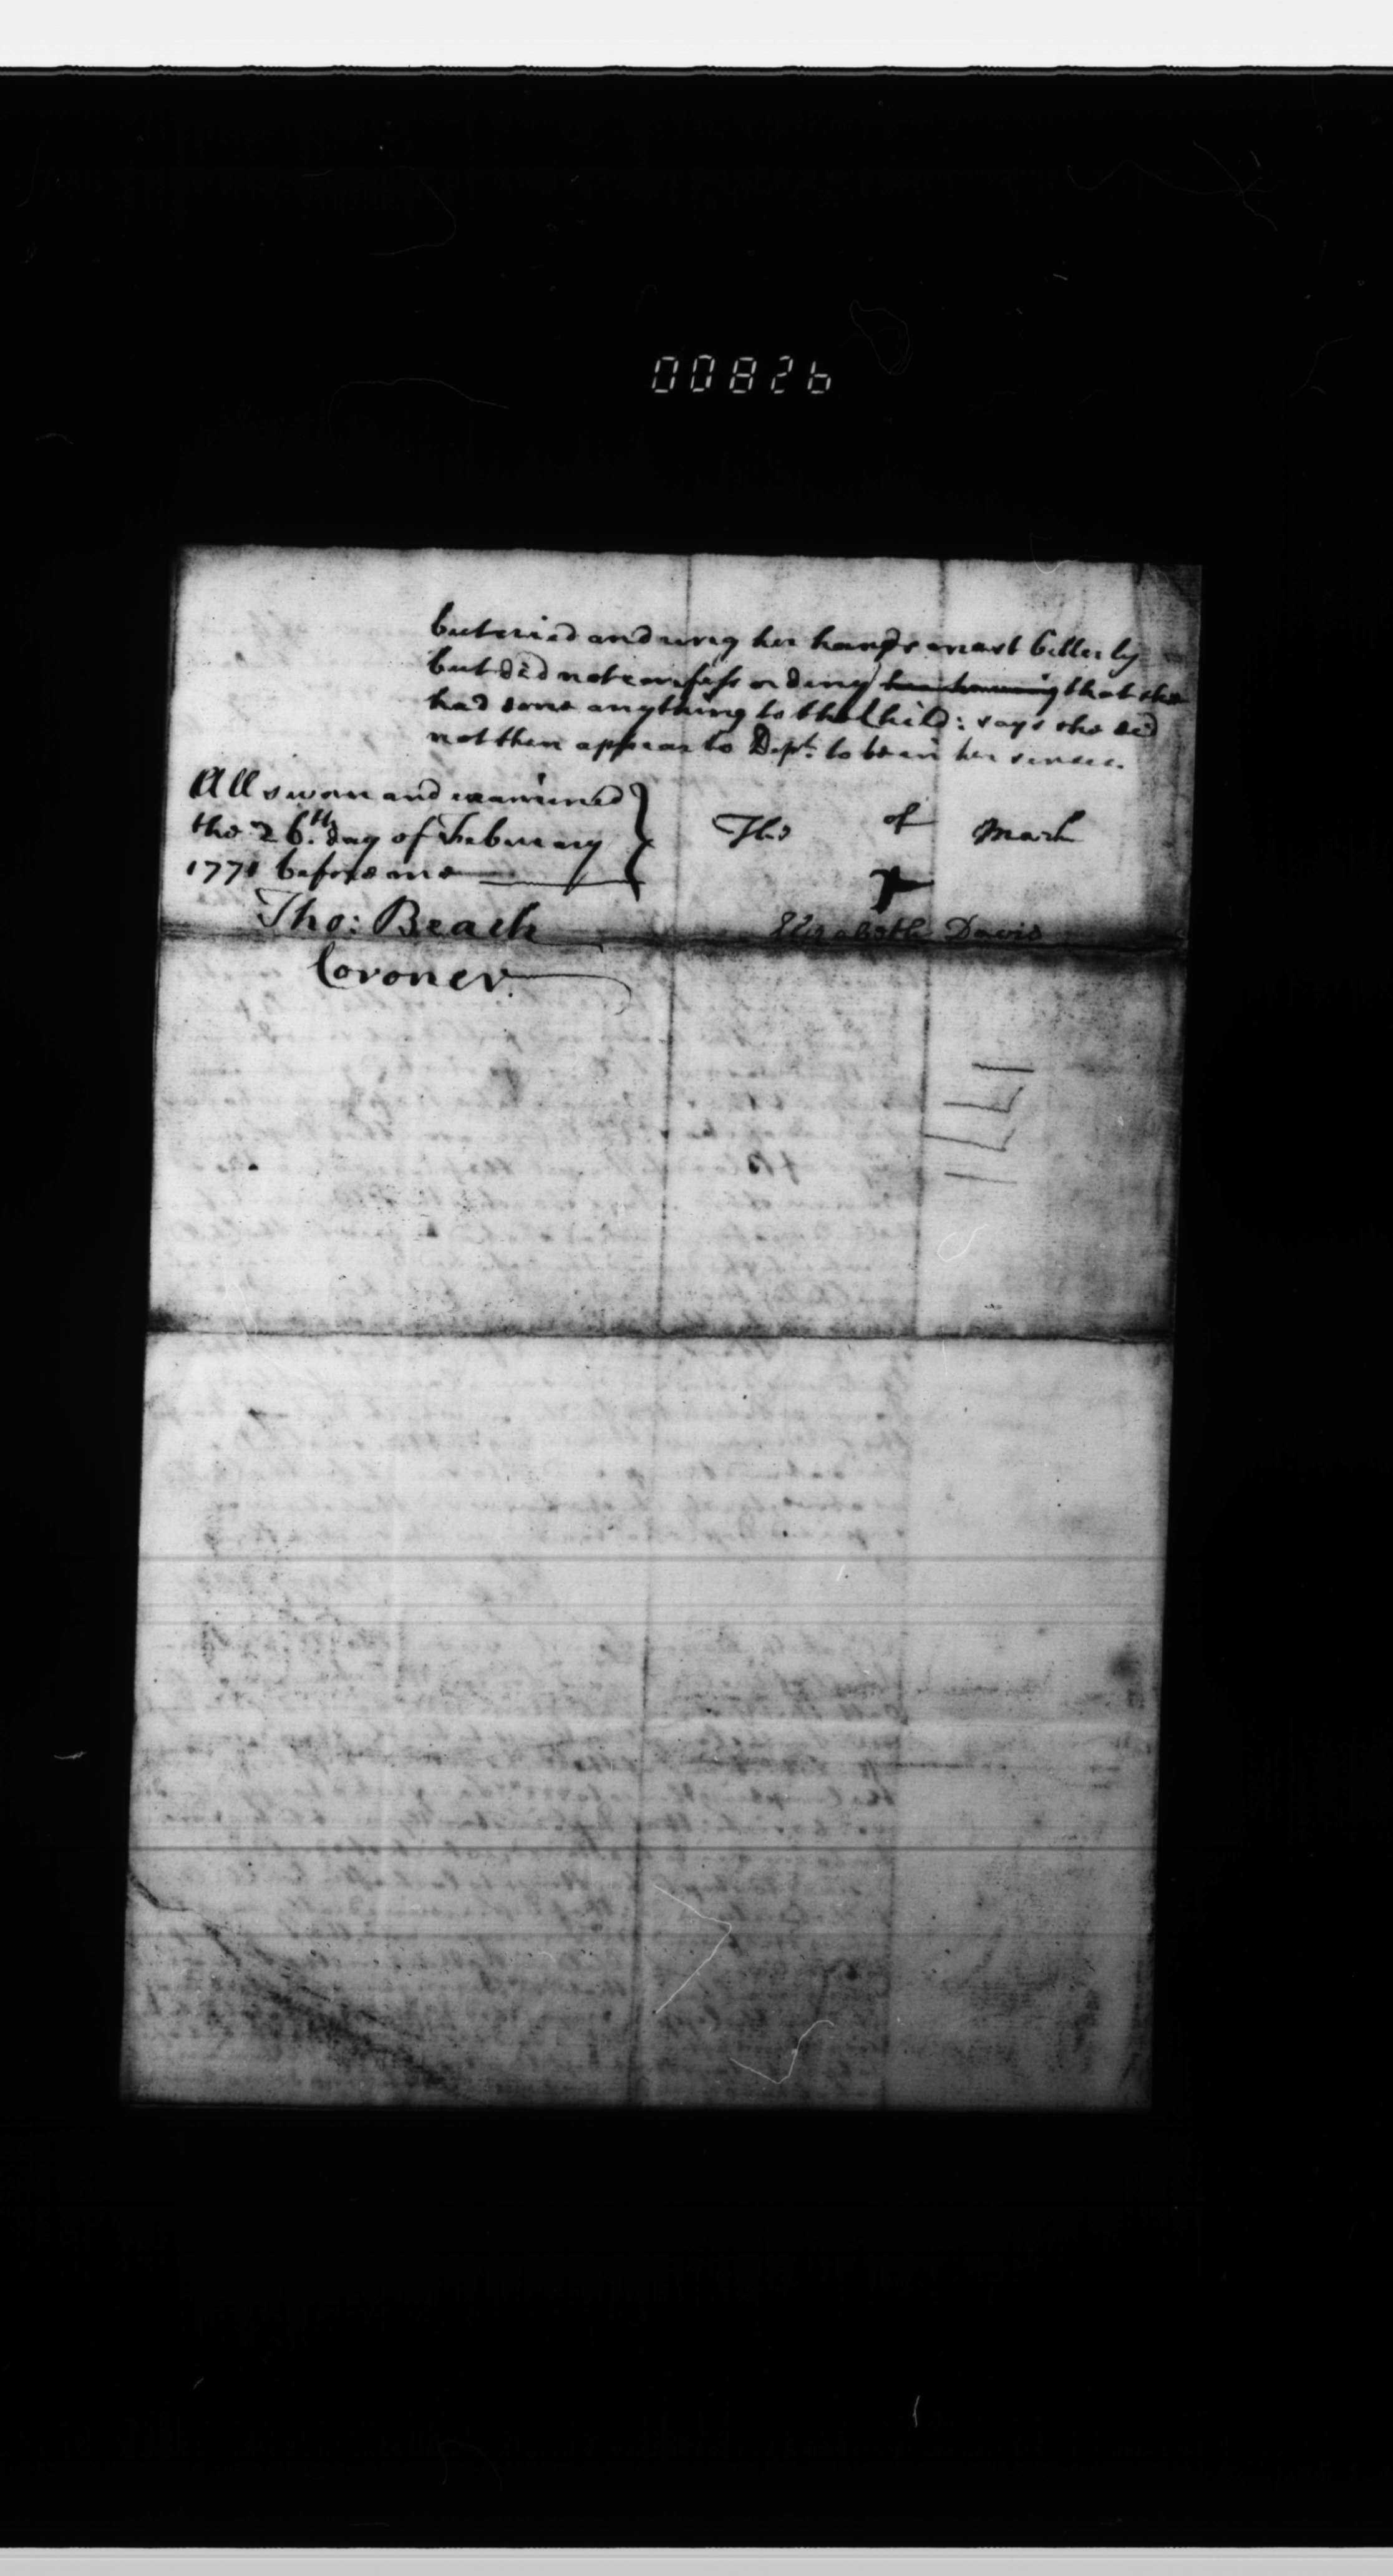 00826
but cried and wrung her hands most bitterly
but did not confess or deny her having that she
had done anything to the Child: says she did
not then appear to Dept. to be in her senses.
All sworn and examined
the 26th. day of Feburary
1771 before me
The of Mark
Elizabeth Davis
Tho: Beach
Coroner.
1771